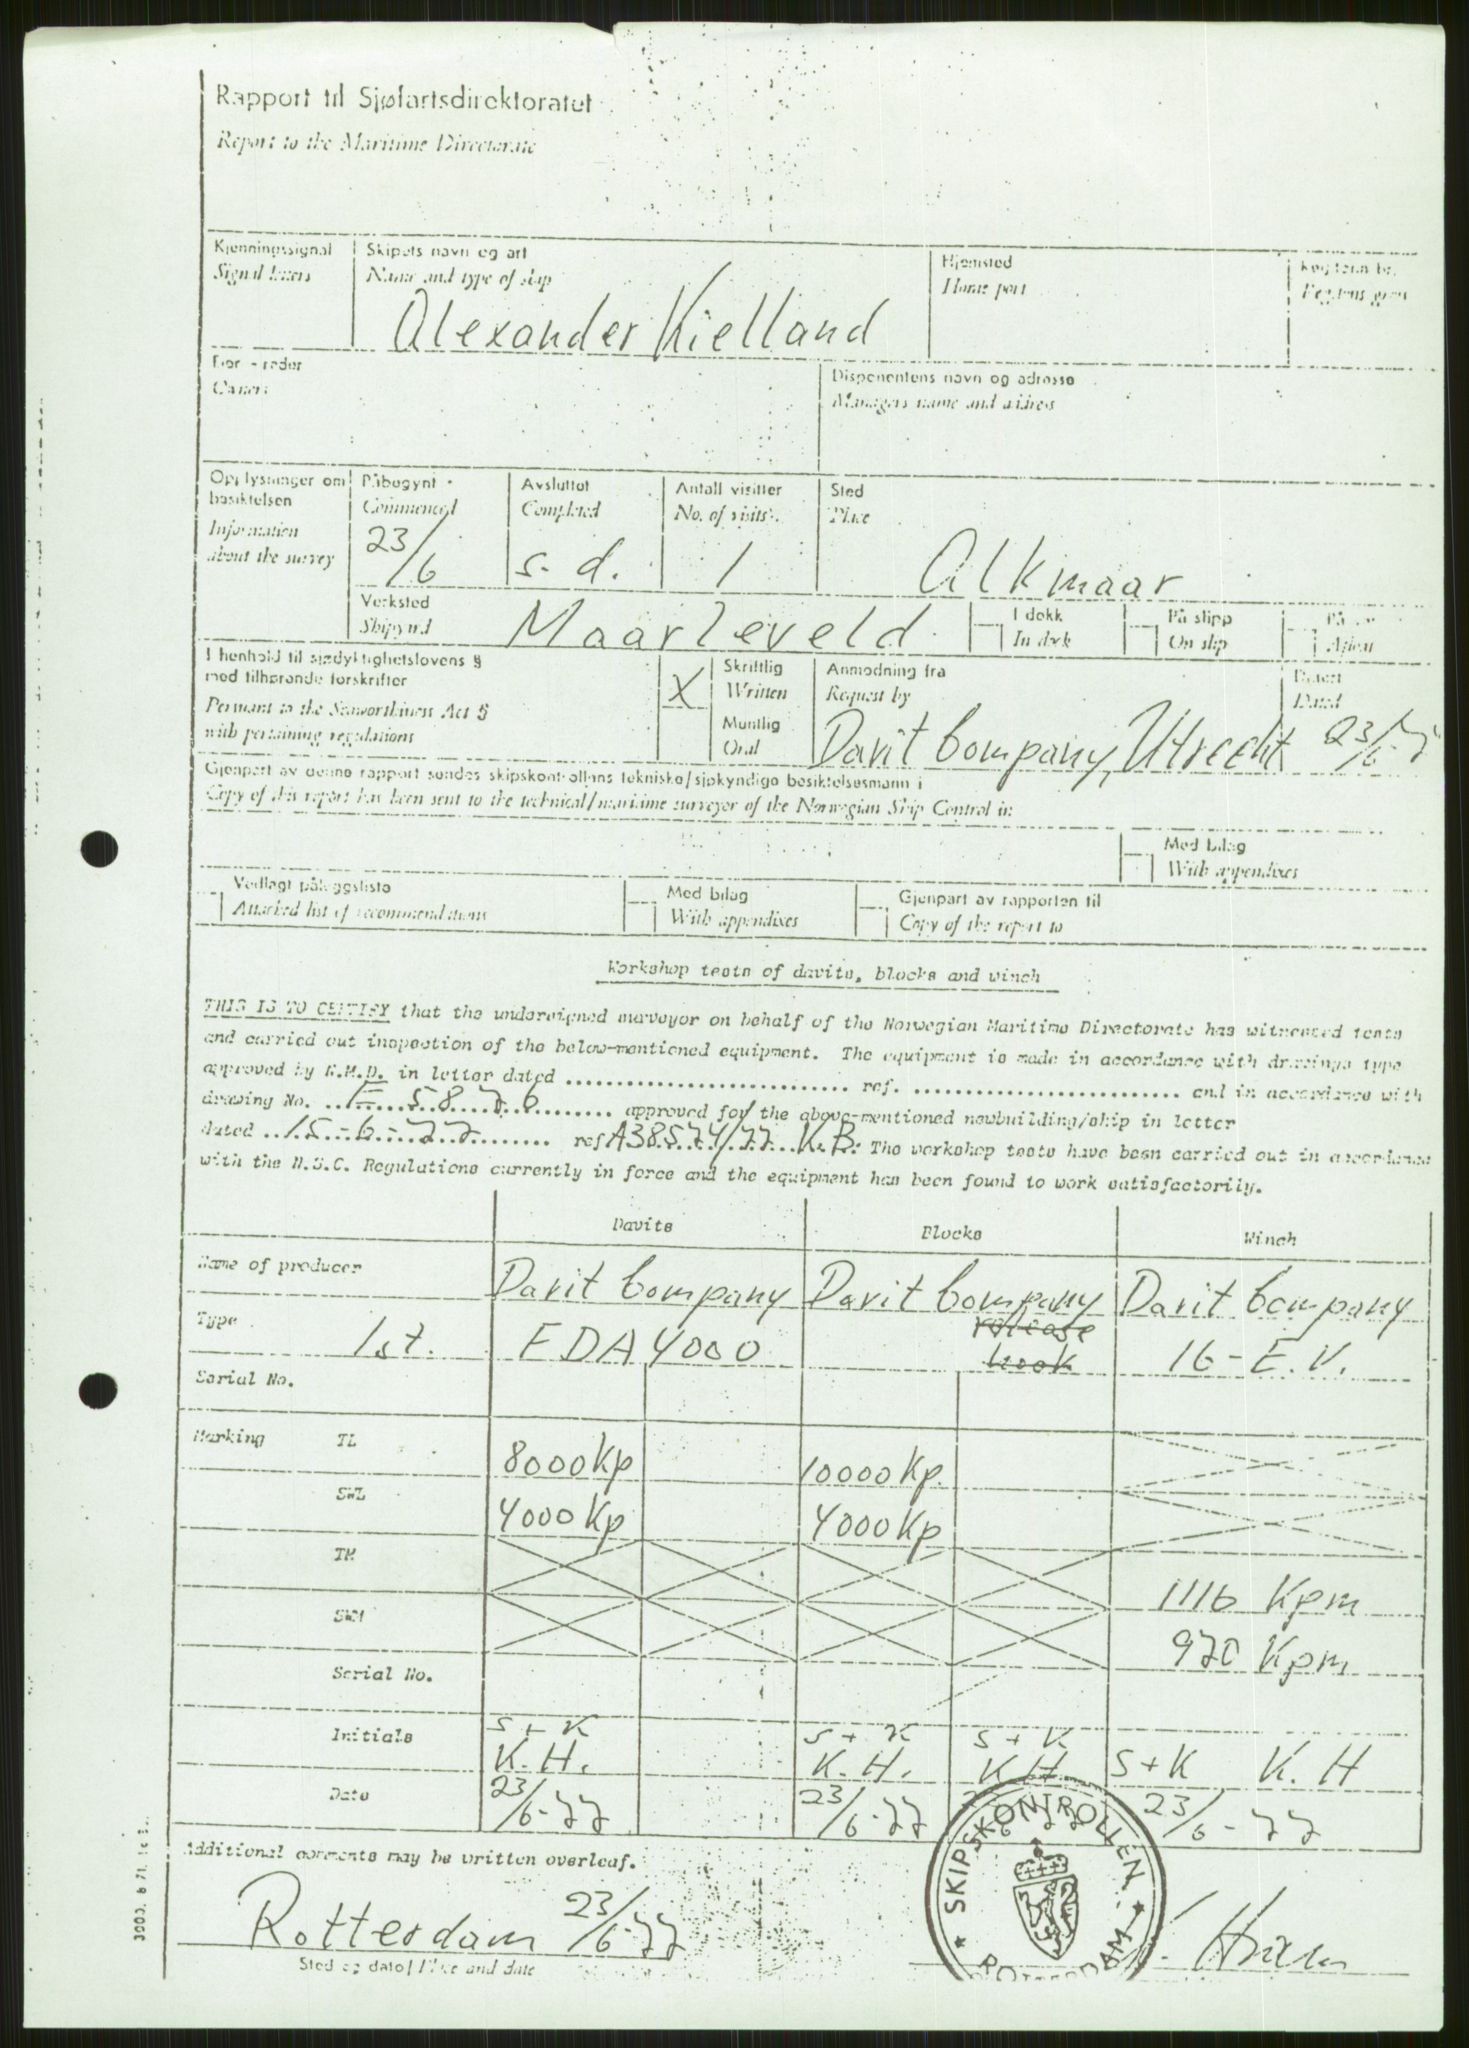 Rapport til Sjøfartsdirektoratet
Report to the Maritime Directorate
Kjenningssignal
Signal letters
Skipets navn og art
Name and type of ship
Alexander Kielland
Hjemsted
Home port
Owners
Disponentens navn og adresse
Managers name and address
Opplysninger om
besiktelsen
Information
about the survey
Påbegynt
Commenced
23/6
Avsluttet
Completed
s. d.
Antall visitter
No. of visits
1
Sted
Place
Alkmaar
Verksted
Shipyard
Maarleveld
I dokk
In dock
På slipp
On slip
Afloat
I henhold til sjødyktighetslovens §
med tilhørende forskrifter
Pursuant to the Seaworthiness Act §
with pertaining regulations
X
Skriftlig
Written
Muntlig
Oral
Anmodning fra
Request by
Davit Company, Utrecht
Datert
Dated
23/6
Gjenpart av denne rapport sendes skipskontrollens tekniske/sjøkyndige besiktelsesmann i
Copy of this report has been sent to the technical/maritime surveyor of the Norwegian Ship Control in
Med bilag
With appendixes
Vedlagt påleggsliste
Attached list of recommendations
Med bilag
With appendixes
Gjenpart av rapporten til
Copy of the report to
Workshop tests of davits, blocks and winch
THIS IS TO CERTIFY that the undersigned surveyor on behalf of the Norwegian Maritime Directorate has witnessed tests
and carried out inspection of the below-mentioned equipment. The equipment is made in accordance with drawings type
approved by N.M.D. in letter dated ............................ ref. ............................ and in accordance with
drawing No. E 5876 approved for the above-mentioned newbuilding/ship in letter
dated 15-6-77 ref A38574/77 K.B. The workshop tests have been carried out in accordance
with the N.S.C. Regulations currently in force and the equipment has been found to work satisfactorily.
Davits Blocks Winch
Name of producer Davit Company Davit Company Davit Company
Type 1st. EDA 4000 release hook 16-E.V.
Serial No.
Marking TL 8000 Kp 10000 Kp.
SWL 4000 Kp 4000 Kp
TM 1116 Kpm
SWM 970 Kpm
Serial No.
Initials S+K K.H. S+K K.H. S+K KH S+K K.H
Date 23/6-77 23/6-77 23/6-77
Additional comments may be written overleaf.
Rotterdam 23/6-77
Sted og dato/Place and date
SKIPSKONTROLLEN
ROTTERDAM
3000. 8 71.